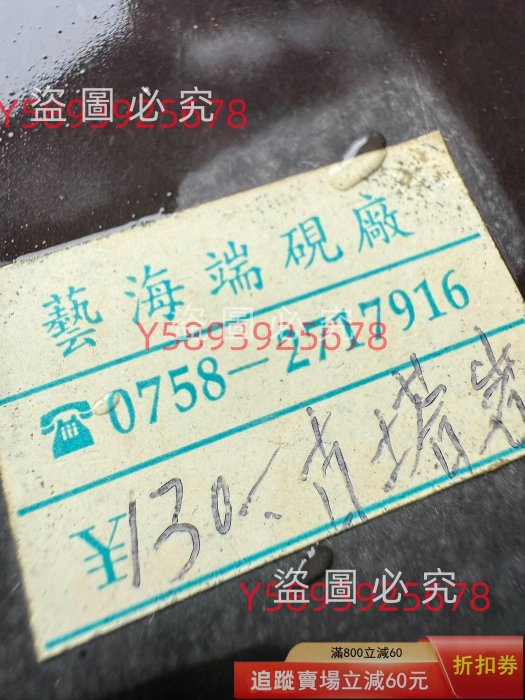 盜圖必究
Y5893925678
藝海端硯廠
盜圖必究
Y5893925678
☎0758-2717916
¥130.
盜圖必究
Y5893925678
滿800立減60
追蹤賣場立減60元
折扣券